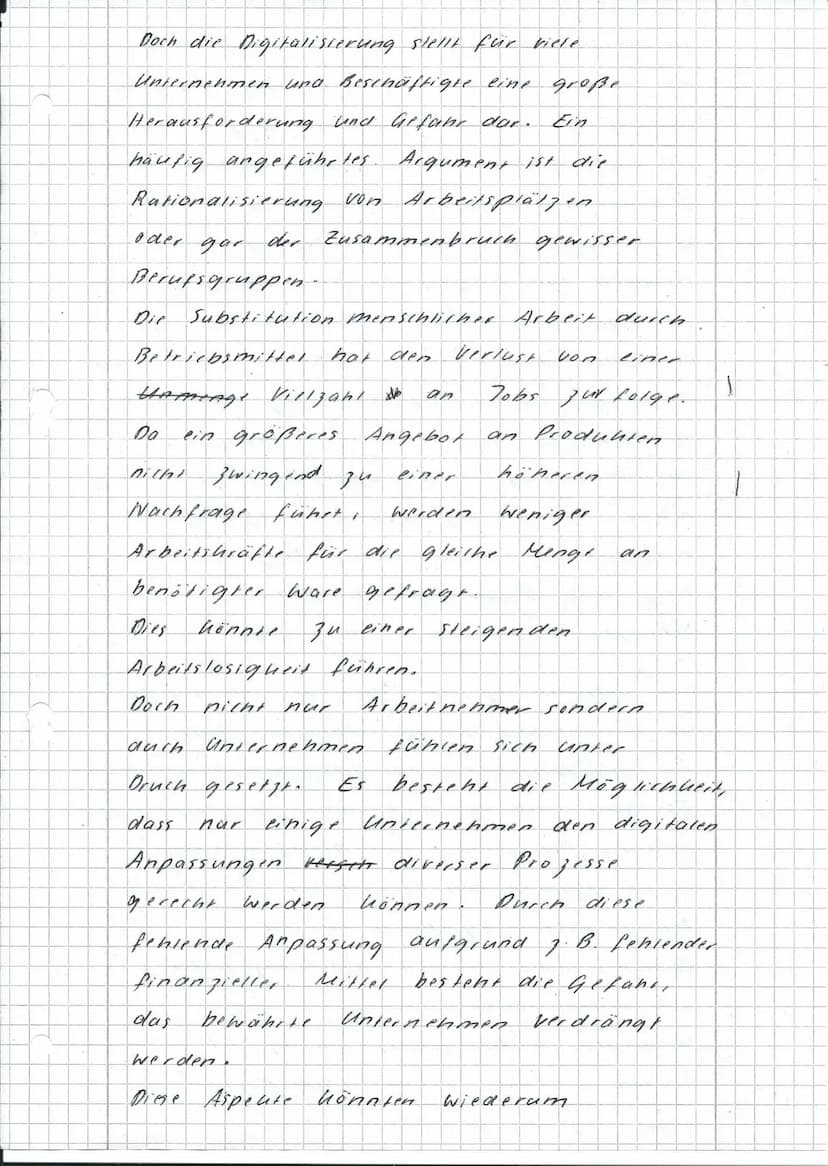 Doch die Digitalisierung stellt für viele
Unternehmen und Beschäftigte eine große
Herausforderung und Gefahr dar. Ein
häufig angeführtes Argument ist die
Rationalisierung von Arbeitsplätzen
oder gar der Zusammenbruch gewisser
Berufsgruppen.
Die Substitution menschlicher Arbeit durch
Betriebsmittel hat den Verlust von einer
Unmenge Vielzahl an Jobs zur folge.
Da ein größeres Angebot an Produkten
nicht zwingend zu einer höheren
Nachfrage führt, werden weniger
Arbeitskräfte für die gleiche Menge an
benötigter Ware gefragt.
Dies könnte zu einer steigenden
Arbeitslosigkeit führen.
Doch nicht nur Arbeitnehmer sondern
auch Unternehmen fühlen sich unter
Druck gesetzt. Es besteht die Möglichkeit,
dass nur einige Unternehmen den digitalen
Anpassungen versch diverser Prozesse
gerecht werden können. Durch diese
fehlende Anpassung aufgrund z.B. fehlender
finanzieller Mittel besteht die Gefahr,
das bewährte Unternehmen verdrängt
werden.
Diese Aspekte könnten wiederum